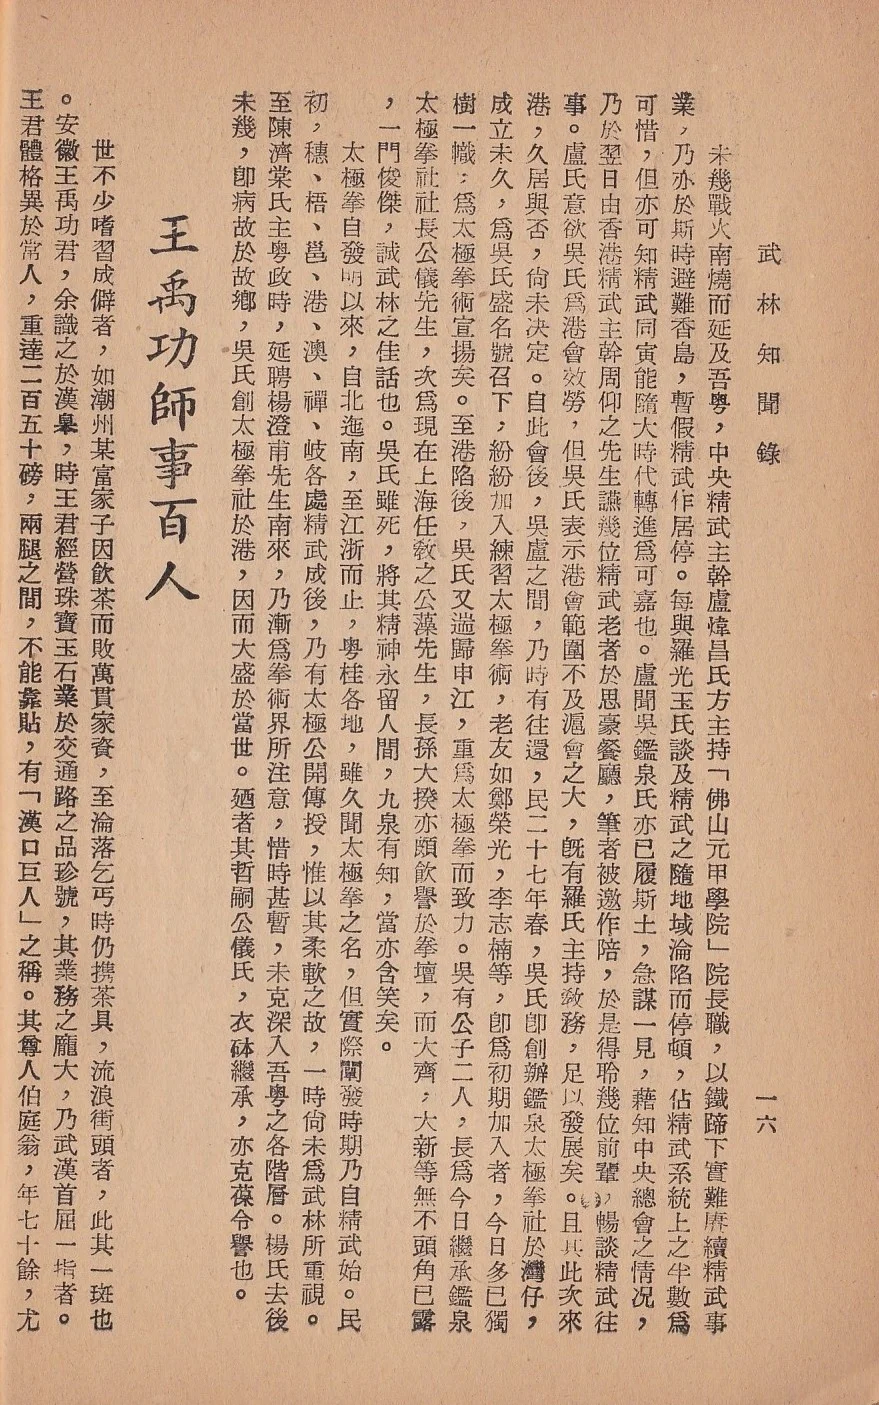 武林知聞錄
一六
未幾戰火南燒而延及吾粤，中央精武主幹盧煒昌氏方主持「佛山元甲學院」院長職，以鐵蹄下實難賡續精武事
業，乃亦於斯時避難香島，暫假精武作居停。每與羅光玉氏談及精武之隨地域淪陷而停頓，佔精武系統上之半數爲
可惜，但亦可知精武同寅能隨大時代轉進爲可嘉也。盧聞吳鑑泉氏亦已履斯土，急謀一見，藉知中央總會之情況，
乃於翌日由香港精武主幹周仰之先生讌幾位精武老者於思豪餐廳，筆者被邀作陪，於是得聆幾位前輩，暢談精武往
事。盧氏意欲吳氏爲港會效勞，但吳氏表示港會範圍不及滬會之大，旣有羅氏主持敎務，足以發展矣。且其此次來
港，久居與否，尙未決定。自此會後，吳盧之間，乃時有往還，民二十七年春，吳氏卽創辦鑑泉太極拳社於灣仔，
成立未久，爲吳氏盛名號召下，紛紛加入練習太極拳術，老友如鄭榮光，李志楠等，卽爲初期加入者，今日多已獨
樹一幟，爲太極拳術宣揚矣。至港陷後，吳氏又遄歸申江，重爲太極拳而致力。吳有公子二人，長爲今日繼承鑑泉
太極拳社社長公儀先生，次爲現在上海任敎之公藻先生，長孫大揆亦頗飮譽於拳壇，而大齊，大新等無不頭角已露
，一門俊傑，誠武林之佳話也。吳氏雖死，將其精神永留人間，九泉有知，當亦含笑矣。
太極拳自發明以來，自北迤南，至江浙而止，粤桂各地，雖久聞太極拳之名，但實際闡發時期乃自精武始。民
初，穗、梧、邕、港、澳、禪、岐各處精武成後，乃有太極公開傳授，惟以其柔軟之故，一時尙未爲武林所重視。
至陳濟棠氏主粤政時，延聘楊澄甫先生南來，乃漸爲拳術界所注意，惜時甚暫，未克深入吾粤之各階層。楊氏去後
未幾，卽病故於故鄕，吳氏創太極拳社於港，因而大盛於當世。廼者其哲嗣公儀氏，衣砵繼承，亦克葆令譽也。
王禹功師事百人
世不少嗜習成僻者，如潮州某富家子因飮茶而敗萬貫家資，至淪落乞丐時仍携茶具，流浪街頭者，此其一斑也
。安徽王禹功君，余識之於漢皋，時王君經營珠寶玉石業於交通路之品珍號，其業務之龐大，乃武漢首屈一指者。
王君體格異於常人，重達二百五十磅，兩腿之間，不能靠貼，有「漢口巨人」之稱。其尊人伯庭翁，年七十餘，尤